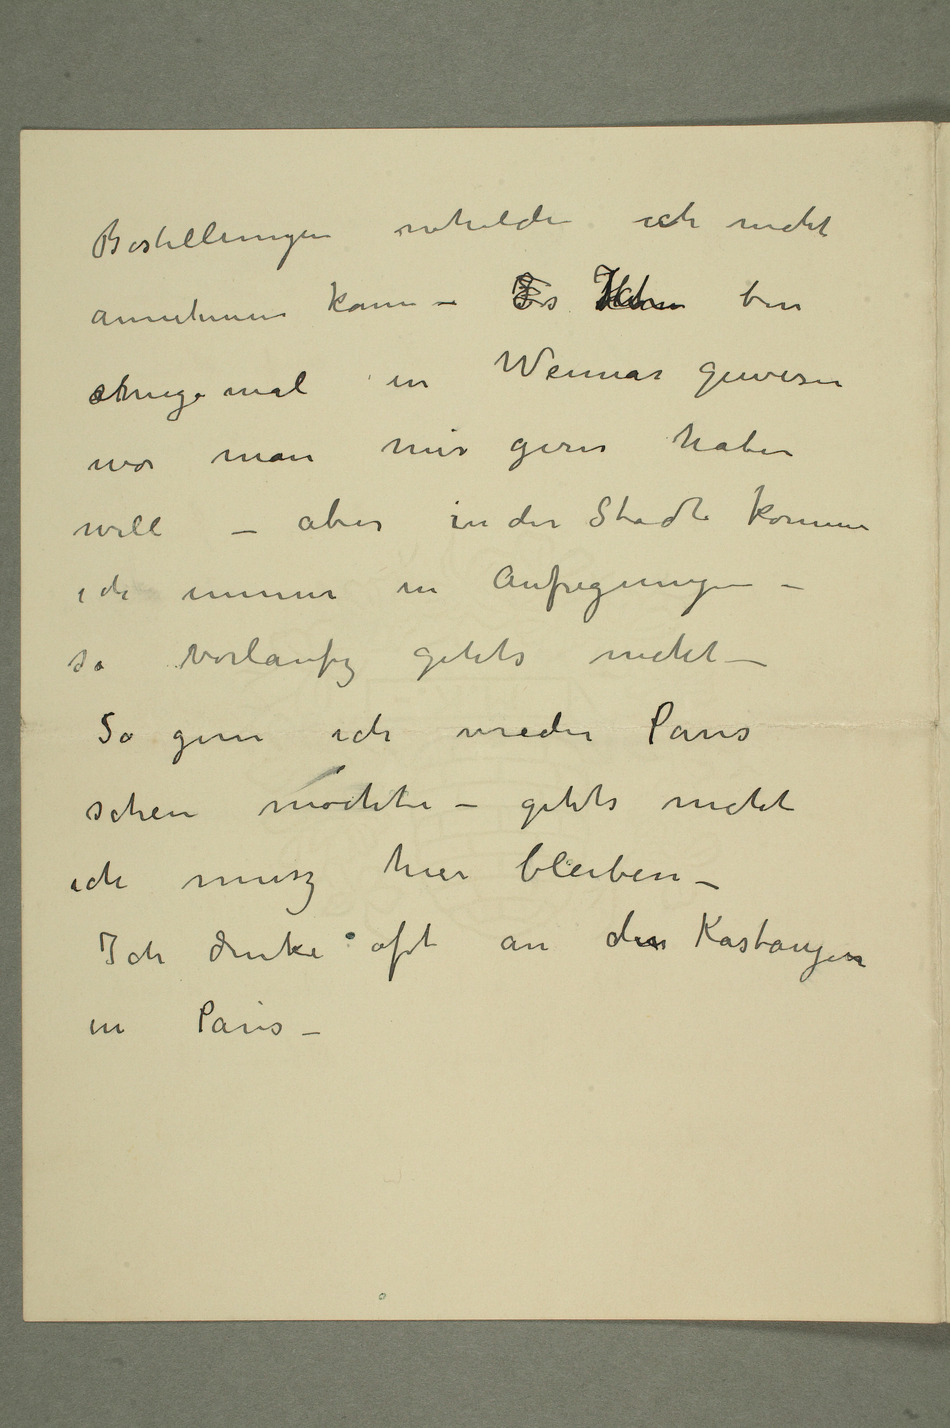 Bestellungen erhilde ich nicht
annehmen kann – Es Ich bin
einige mal in Weimar gewesen
wor man mir gern haben
will – aber in der Stadt komme
ich immer in Aufregungen –
so vorlaufig gehts nicht –
So gern ich wieder Paris
sehen mochte – gehts nicht
ich musz hier bleiben –
Ich denke oft an den Kastanjen
in Paris –